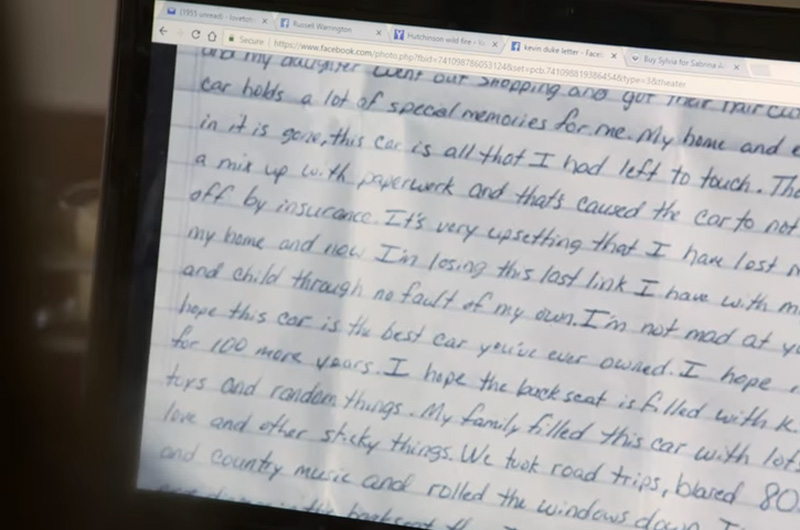 (1955 unread) - lovetos
Russell Warrington
Hutchinson wild fire -
kevin duke letter - Face
Buy Sylvia for Sabrina A
Secure
https://www.facebook.com/photo.php?fbid=741098786053124&set=pcb.741098819386454&type=3&theater
and my daughter went out shopping and got their hair
car holds a lot of special memories for me. My home and e
in it is gone, this car is all that I had left to touch. The
a mix up with paperwork and thats caused the car to not
off by insurance. It's very upsetting that I have lost m
my home and now I'm losing this last link I have with m
and child through no fault of my own. I'm not mad at yo
hope this car is the best car you've ever owned. I hope i
for 100 more years. I hope the backseat is filled with k
toys and random things. My family filled this car with lots
love and other sticky things. We took road trips, blared 80
and country music and rolled the windows down.
backseat